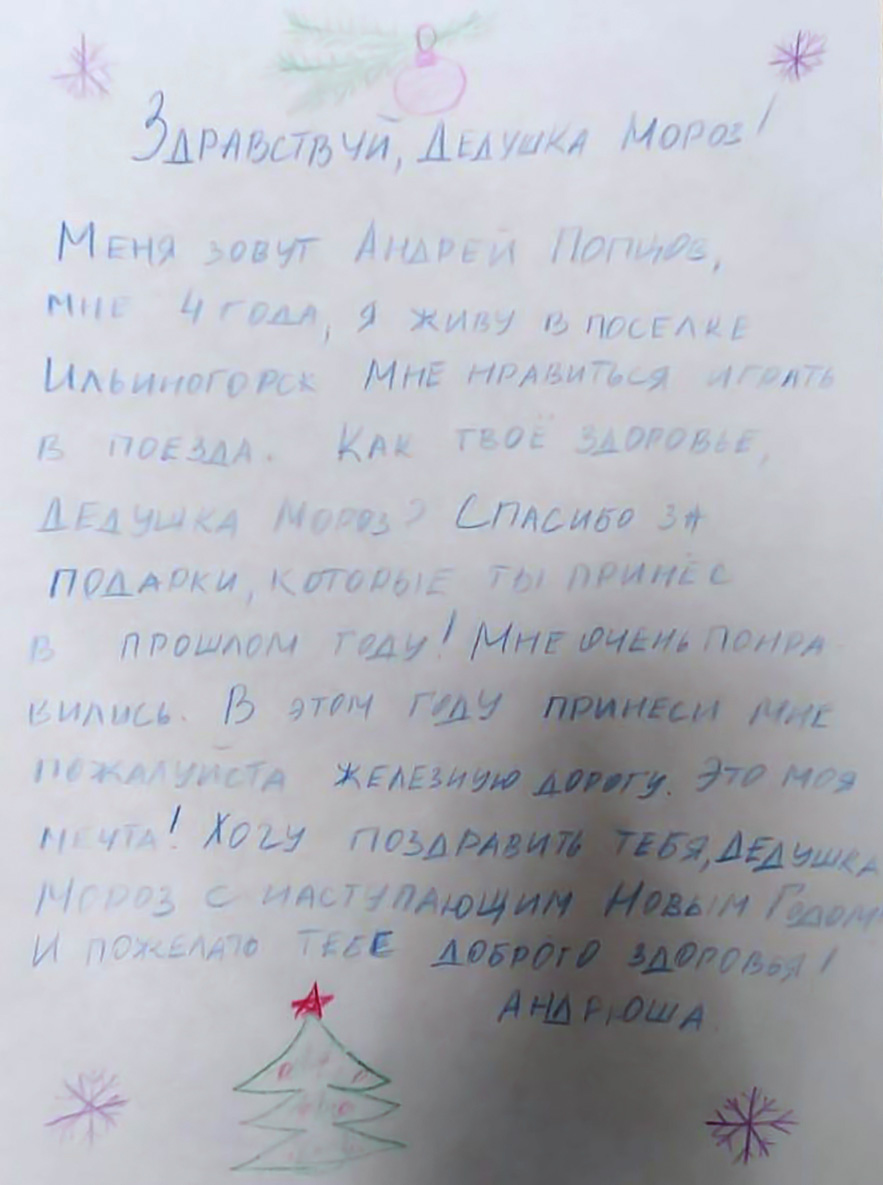 Здравствуй, Дедушка Мороз!
Меня зовут Андрей Попцов,
мне 4 года, я живу в поселке
Ильиногорск Мне нравиться играть
в поезда. Как твоё здоровье,
Дедушка Мороз? Спасибо за
подарки, которые ты принёс
в прошлом году! Мне очень понра
вились. В этом году принеси мне
пожалуйста железную дорогу. Это моя
мечта! Хочу поздравить тебя, Дедушка
Мороз с наступающим Новым Годом
и пожелать тебе доброго здоровья!
Андрюша.